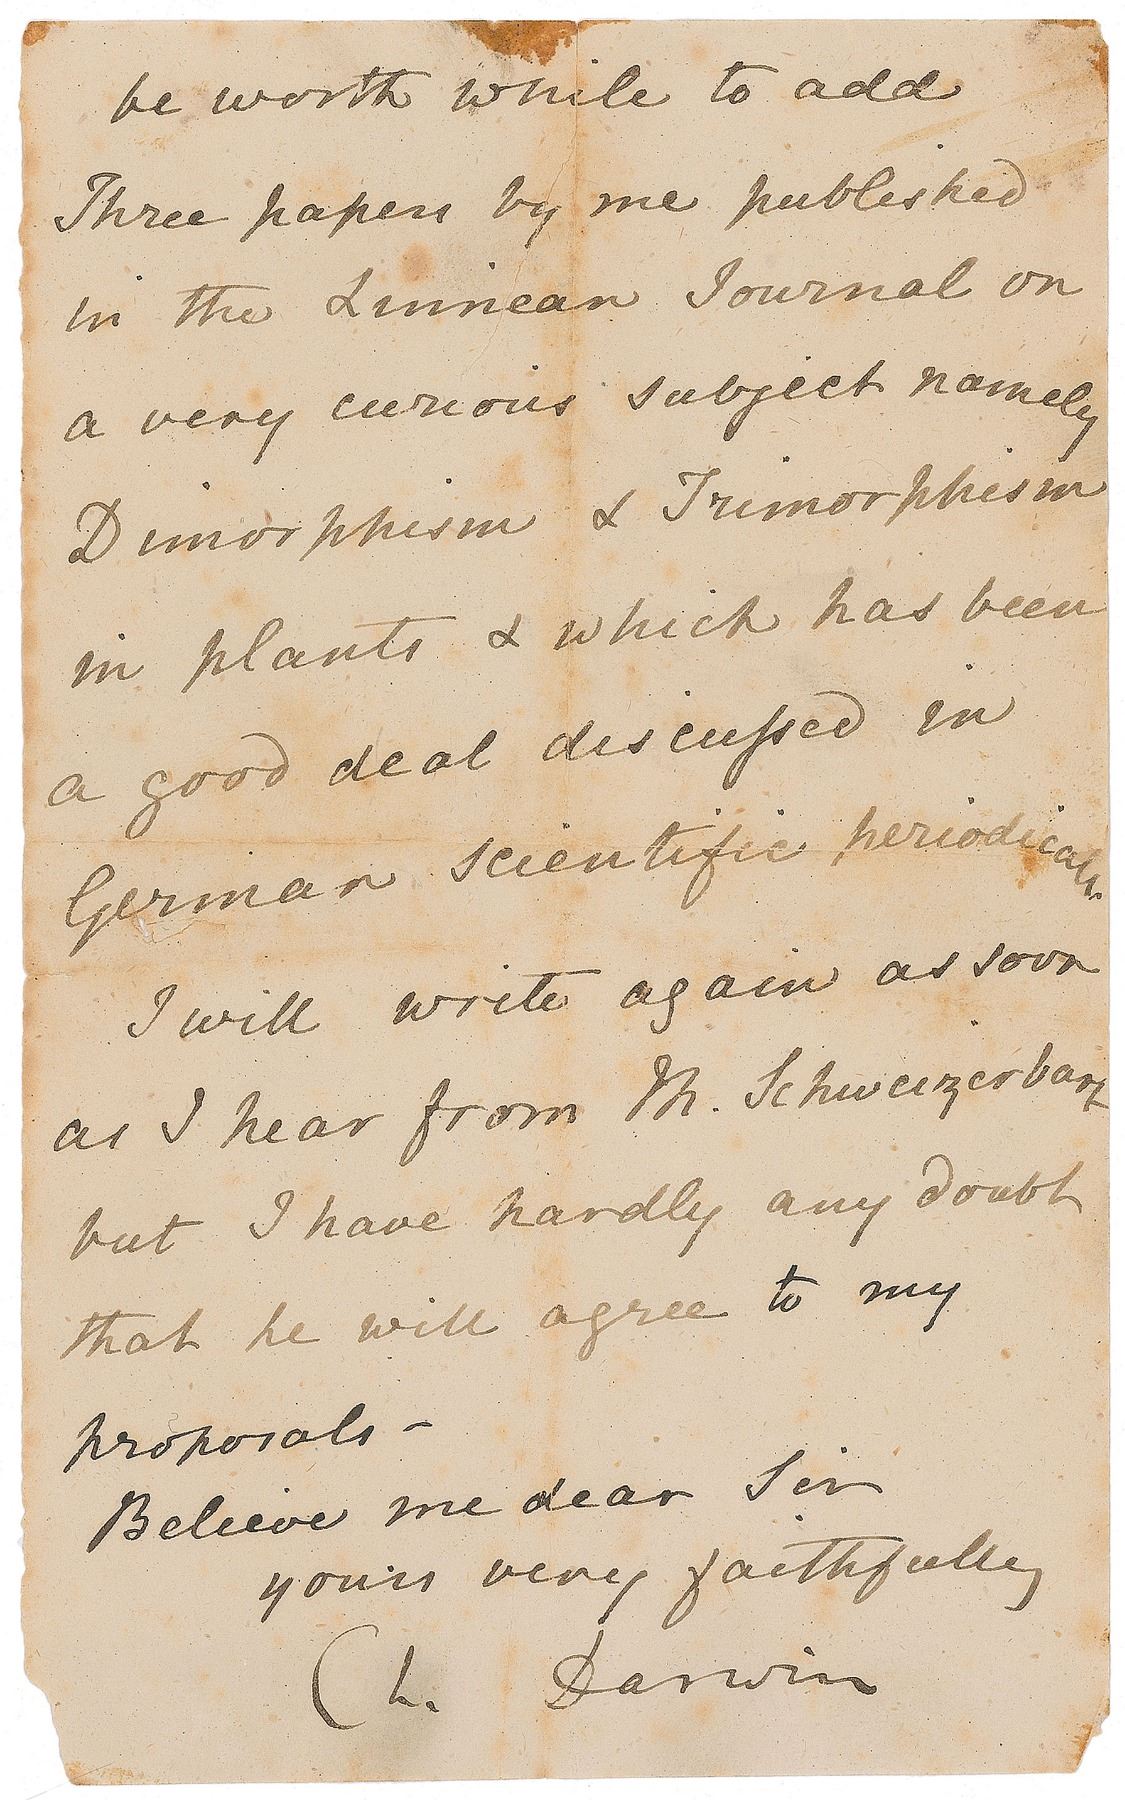 be worth while to add
Three papers by me published
in the Linnean Journal on
a very curious subject namely
Dimorphism & Trimorphism
in plants & which has been
a good deal discussed in
German scientific periodicals.
I will write again as soon
as I hear from M. Schweizerbarz
but I have hardly any doubt
that he will agree to my
proposals –
Believe me dear Sir
yours very faithfully
Ch. Darwin